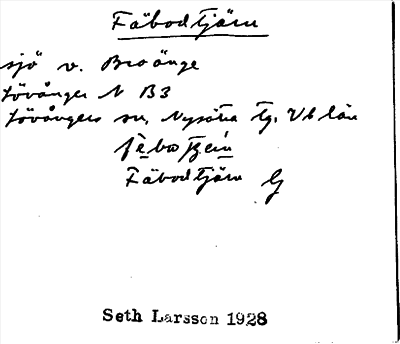 Fäbodtjärn
sjö v. Broänge
Lövånger N B3
Lövångers sn, Nysätra tg. Vb län
Fäbodtjärn G
Seth Larsson 1928